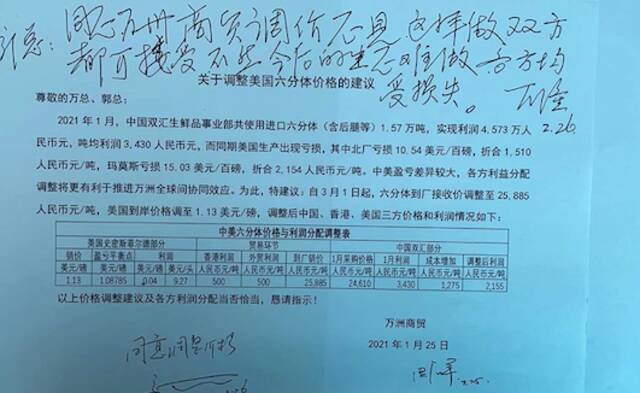 郭总：同意万洲商贸调价意见 这样做双方
都可接受 不然今后的生意难做 各方均
受损失。 万隆
2.26.
关于调整美国六分体价格的建议
尊敬的万总、郭总：
2021 年 1 月，中国双汇生鲜品事业部共使用进口六分体（含后腿等）1.57 万吨，实现利润 4,573 万人
民币元，吨均利润 3,430 人民币元，而同期美国生产出现亏损，其中北厂亏损 10.54 美元/百磅，折合 1,510
人民币元/吨，玛莫斯亏损 15.03 美元/百磅，折合 2,154 人民币元/吨。中美盈亏差异较大，各方利益分配
调整将更有利于推进万洲全球间协同效应。为此，特建议：自 3 月 1 日起，六分体到厂接收价调整至 25,885
人民币元/吨，美国到岸价格调至 1.13 美元/磅，调整后中国、香港、美国三方价格和利润情况如下：
中美六分体价格与利润分配调整表
美国史密斯菲尔德部分 贸易环节 中国双汇部分
销价 盈亏平衡点 利润 香港利润 外贸利润 到厂销价 1月采购价格 1月利润 成本增加 调整后利润
美元/磅 美元/磅 美元/磅 美元/头 人民币元/吨 人民币元/吨 人民币元/吨 人民币元/吨 人民币元/吨 人民币元/吨 人民币元/吨
1.13 1.08785 0.04 9.27 500 500 25,885 24,610 3,430 1,275 2,155
以上价格调整建议及各方利润分配当否恰当，恳请指示！
万洲商贸
2021 年 1 月 25 日
同意调整价格